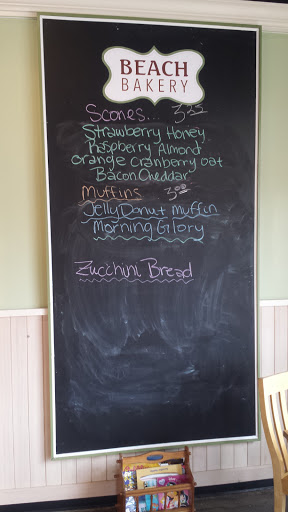 BEACH
BAKERY
Scones...
Strawberry Honey
Raspberry Almond
orange cranberry oat
Bacon Cheddar
Muffins 3.00
Jelly Donut Muffin
Morning Glory
Zucchini Bread